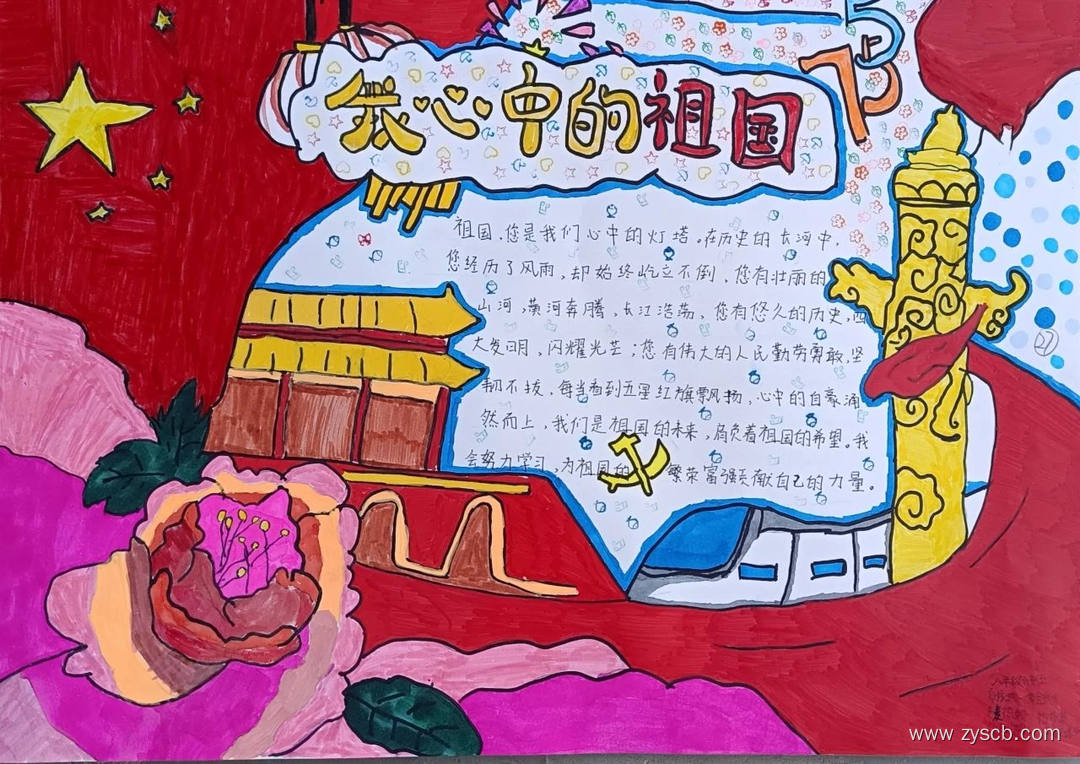 我心中的祖国
75
祖国，您是我们心中的灯塔。在历史的长河中，
您经历了风雨，却始终屹立不倒，您有壮丽的
山河，黄河奔腾，长江浩荡，您有悠久的历史，四
大发明，闪耀光芒；您有伟大的人民勤劳勇敢，坚
韧不拔，每当看到五星红旗飘扬，心中的自豪涌
然而上，我们是祖国的未来，肩负着祖国的希望。我
会努力学习，为祖国的繁荣富强贡献自己的力量。
www.zyscb.com